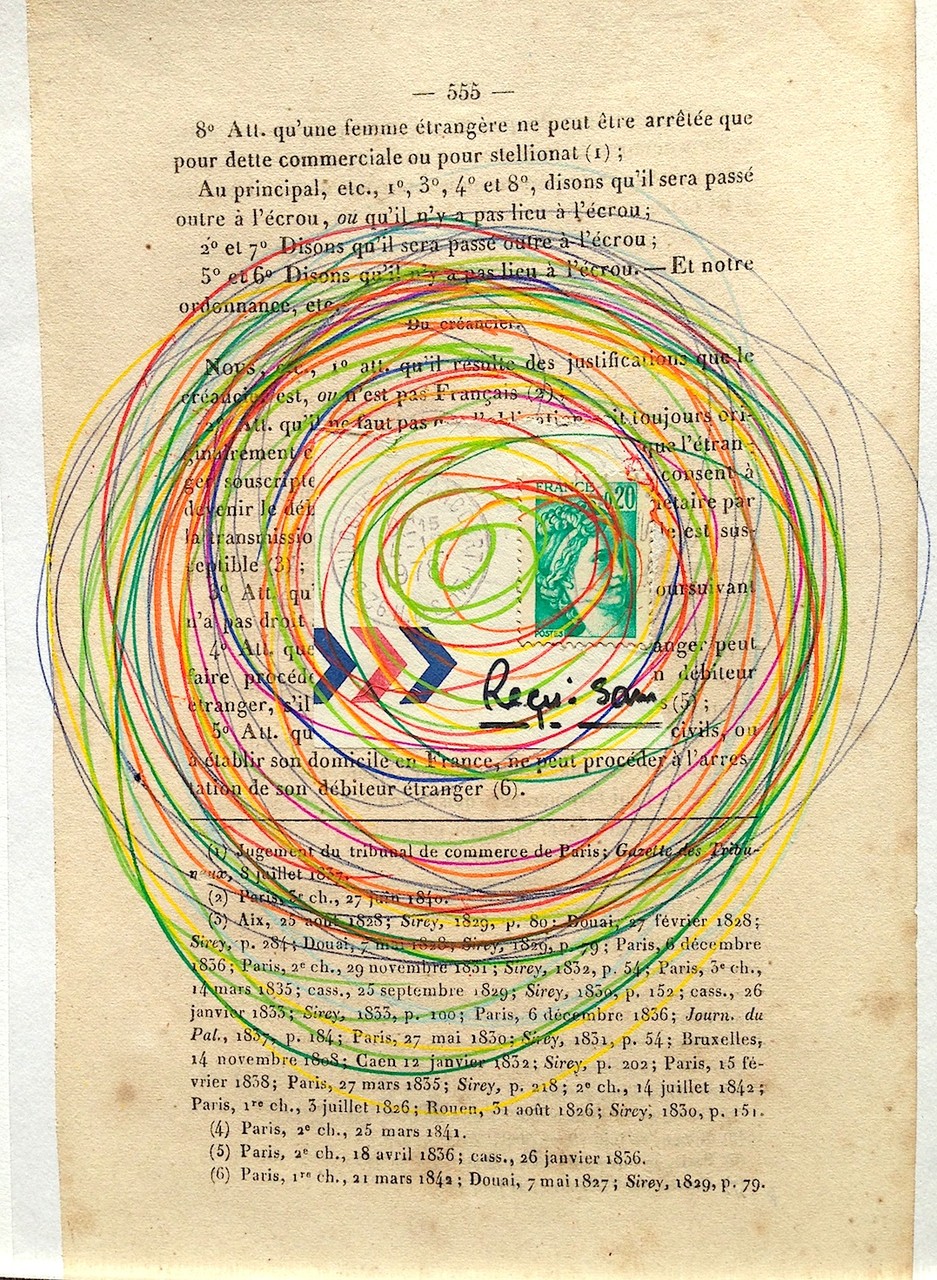 — 555 —
8° Att. qu'une femme étrangère ne peut être arrêtée que
pour dette commerciale ou pour stellionat (1) ;
Au principal, etc., 1°, 3°, 4° et 8°, disons qu'il sera passé
outre à l'écrou, ou qu'il n'y a pas lieu à l'écrou ;
2° et 7° Disons qu'il sera passé outre à l'écrou ;
5° et 6° Disons qu'il n'y a pas lieu à l'écrou. — Et notre
ordonnance, etc.
Du créancier.
Nous, etc., 1° att. qu'il résulte des justifications que le
créancier est, ou n'est pas Français (2) ;
2° Att. qu'il ne faut pas que l'obligation soit toujours ori-
ginairement que l'étran-
ger souscripte consent à
devenir le dé étaire par
la transmissio le est sus-
ceptible (3) ;
3° Att. qu' oursuivant
n'a pas droit
4° Att. que anger peut
faire procéde n débiteur
étranger, s'il s (5) ;
5° Att. qu civils, ou
à établir son domicile en France, ne peut procéder à l'arres-
tation de son débiteur étranger (6).
FRANCE 0,20
POSTES
15
26
Requi. Sam
(1) Jugement du tribunal de commerce de Paris ; Gazette des Tribu-
naux, 8 juillet 1837.
(2) Paris, 3e ch., 27 juin 1840.
(3) Aix, 25 août 1828 ; Sirey, 1829, p. 80 ; Douai, 27 février 1828 ;
Sirey, p. 284 ; Douai, 7 mai 1828, Sirey, 1829, p. 79 ; Paris, 6 décembre
1836 ; Paris, 2e ch., 29 novembre 1831 ; Sirey, 1832, p. 54 ; Paris, 3e ch.,
14 mars 1835 ; cass., 25 septembre 1829 ; Sirey, 1830, p. 152 ; cass., 26
janvier 1833 ; Sirey, 1833, p. 100 ; Paris, 6 décembre 1836 ; Journ. du
Pal., 1837, p. 184 ; Paris, 27 mai 1830 ; Sirey, 1831, p. 54 ; Bruxelles,
14 novembre 1808 ; Caen 12 janvier 1832 ; Sirey, p. 202 ; Paris, 15 fé-
vrier 1838 ; Paris, 27 mars 1835 ; Sirey, p. 218 ; 2e ch., 14 juillet 1842 ;
Paris, 1re ch., 3 juillet 1826 ; Rouen, 31 août 1826 ; Sirey, 1830, p. 151.
(4) Paris, 2e ch., 25 mars 1841.
(5) Paris, 2e ch., 18 avril 1836 ; cass., 26 janvier 1836.
(6) Paris, 1re ch., 21 mars 1842 ; Douai, 7 mai 1827 ; Sirey, 1829, p. 79.